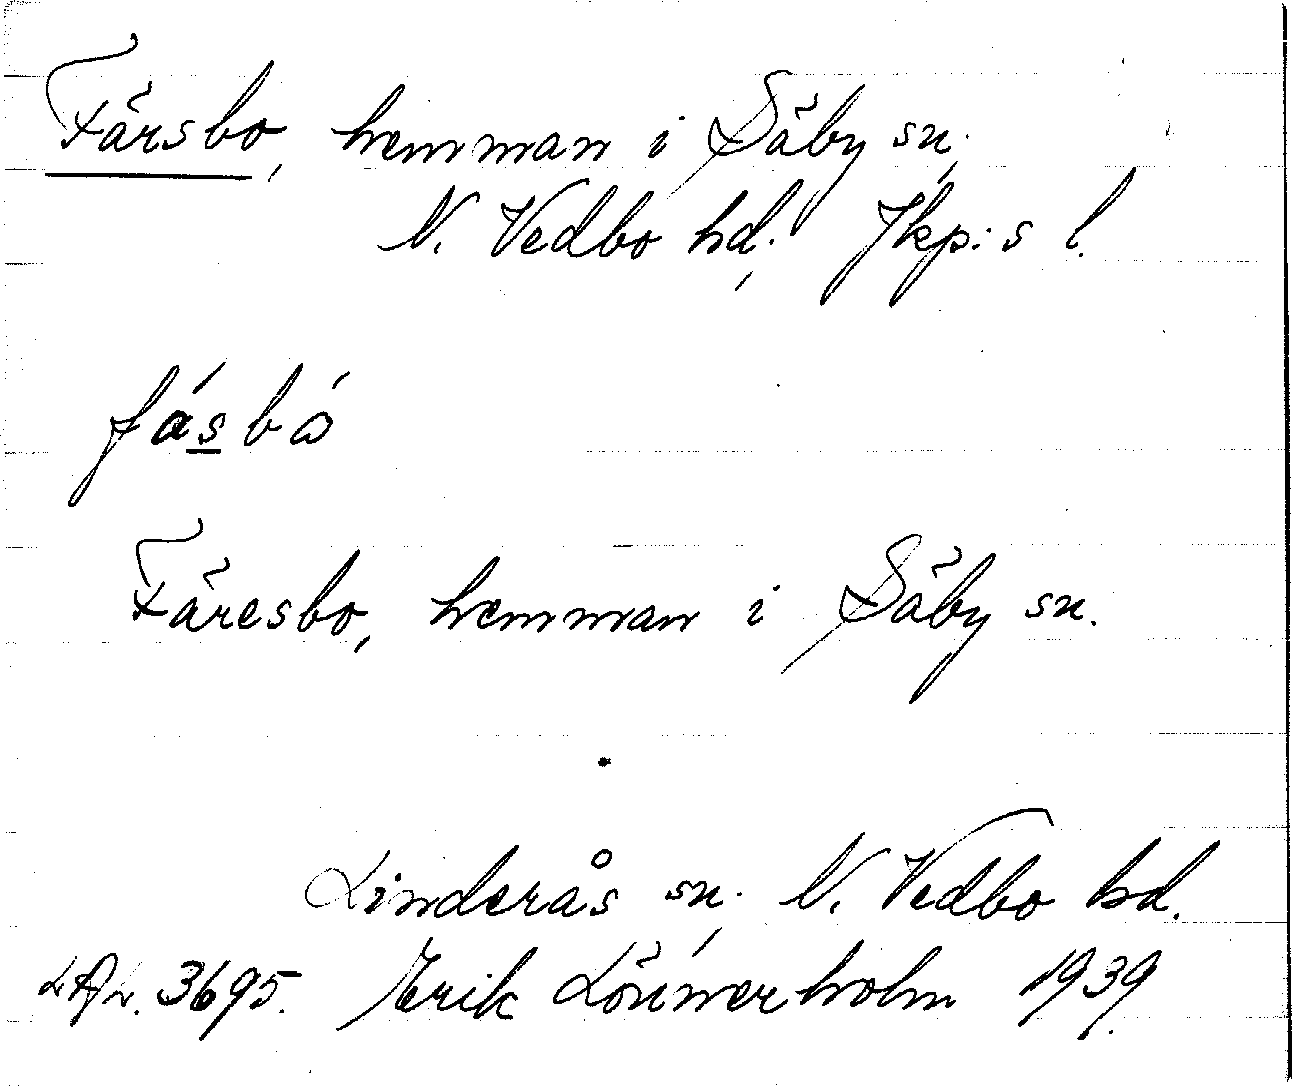 Färsbo, hemman i Säby sn,
N. Vedbo hd, Jkp:s l.
fásbó
Färesbo, hemman i Säby sn.
Linderås sn, N. Vedbo hd.
LAL. 3695. Erik Lönnerholm 1939.